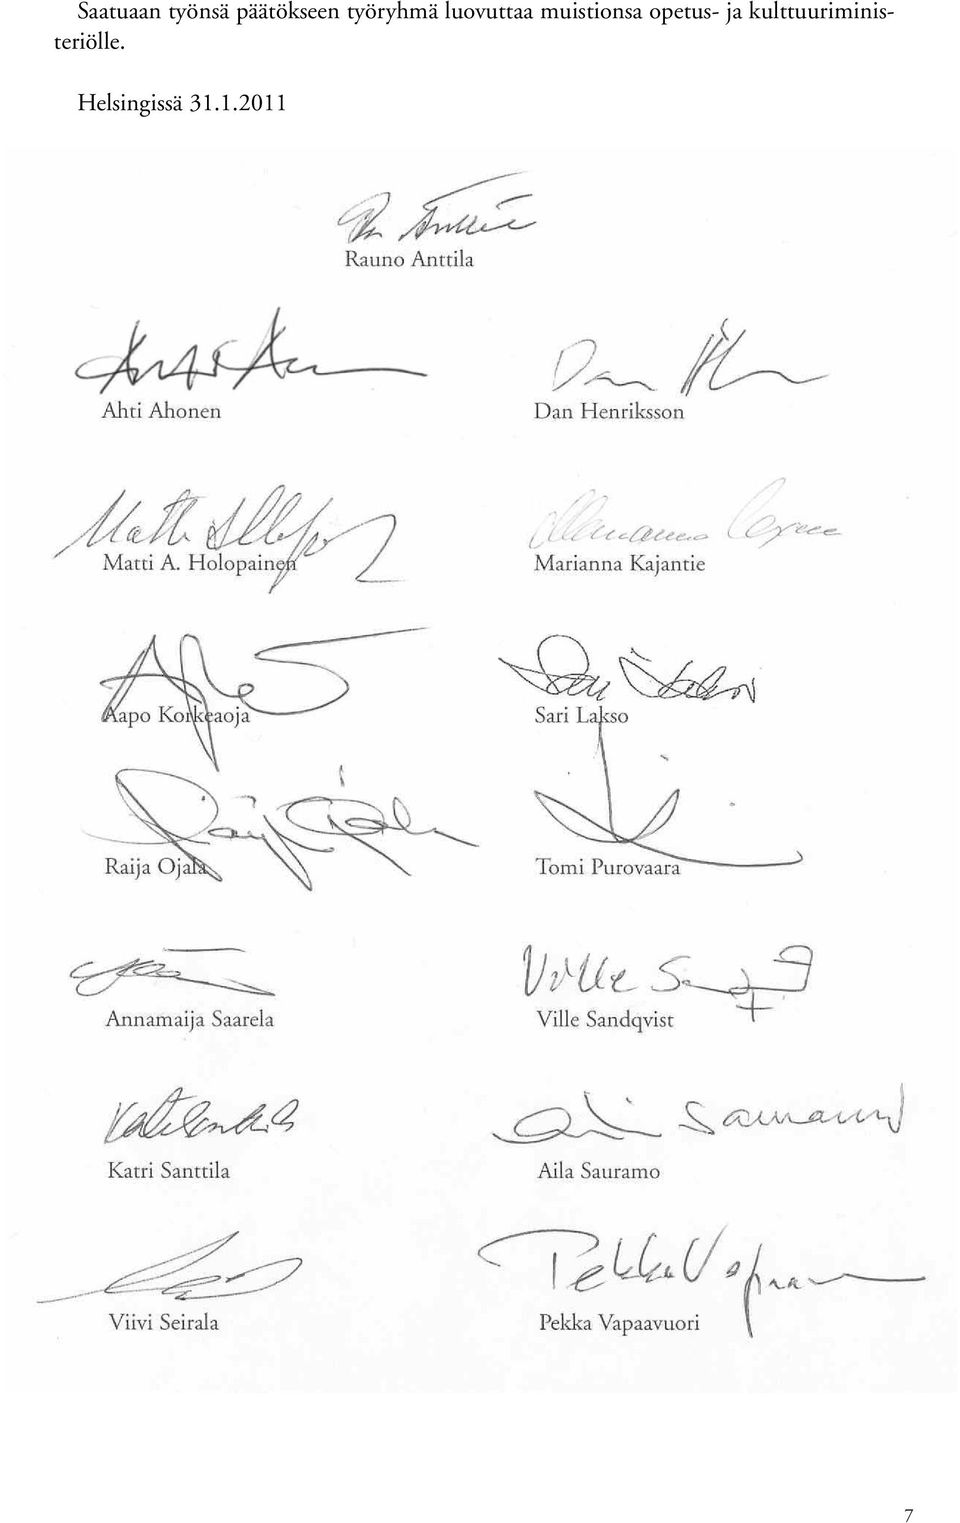 Saatuaan työnsä päätökseen työryhmä luovuttaa muistionsa opetus- ja kulttuuriminis-
teriölle.
Helsingissä 31.1.2011
Rauno Anttila
Ahti Ahonen
Dan Henriksson
Matti A. Holopainen
Marianna Kajantie
Aapo Korkeaoja
Sari Lakso
Raija Ojala
Tomi Purovaara
Annamaija Saarela
Ville Sandqvist
Katri Santtila
Aila Sauramo
Viivi Seirala
Pekka Vapaavuori
7